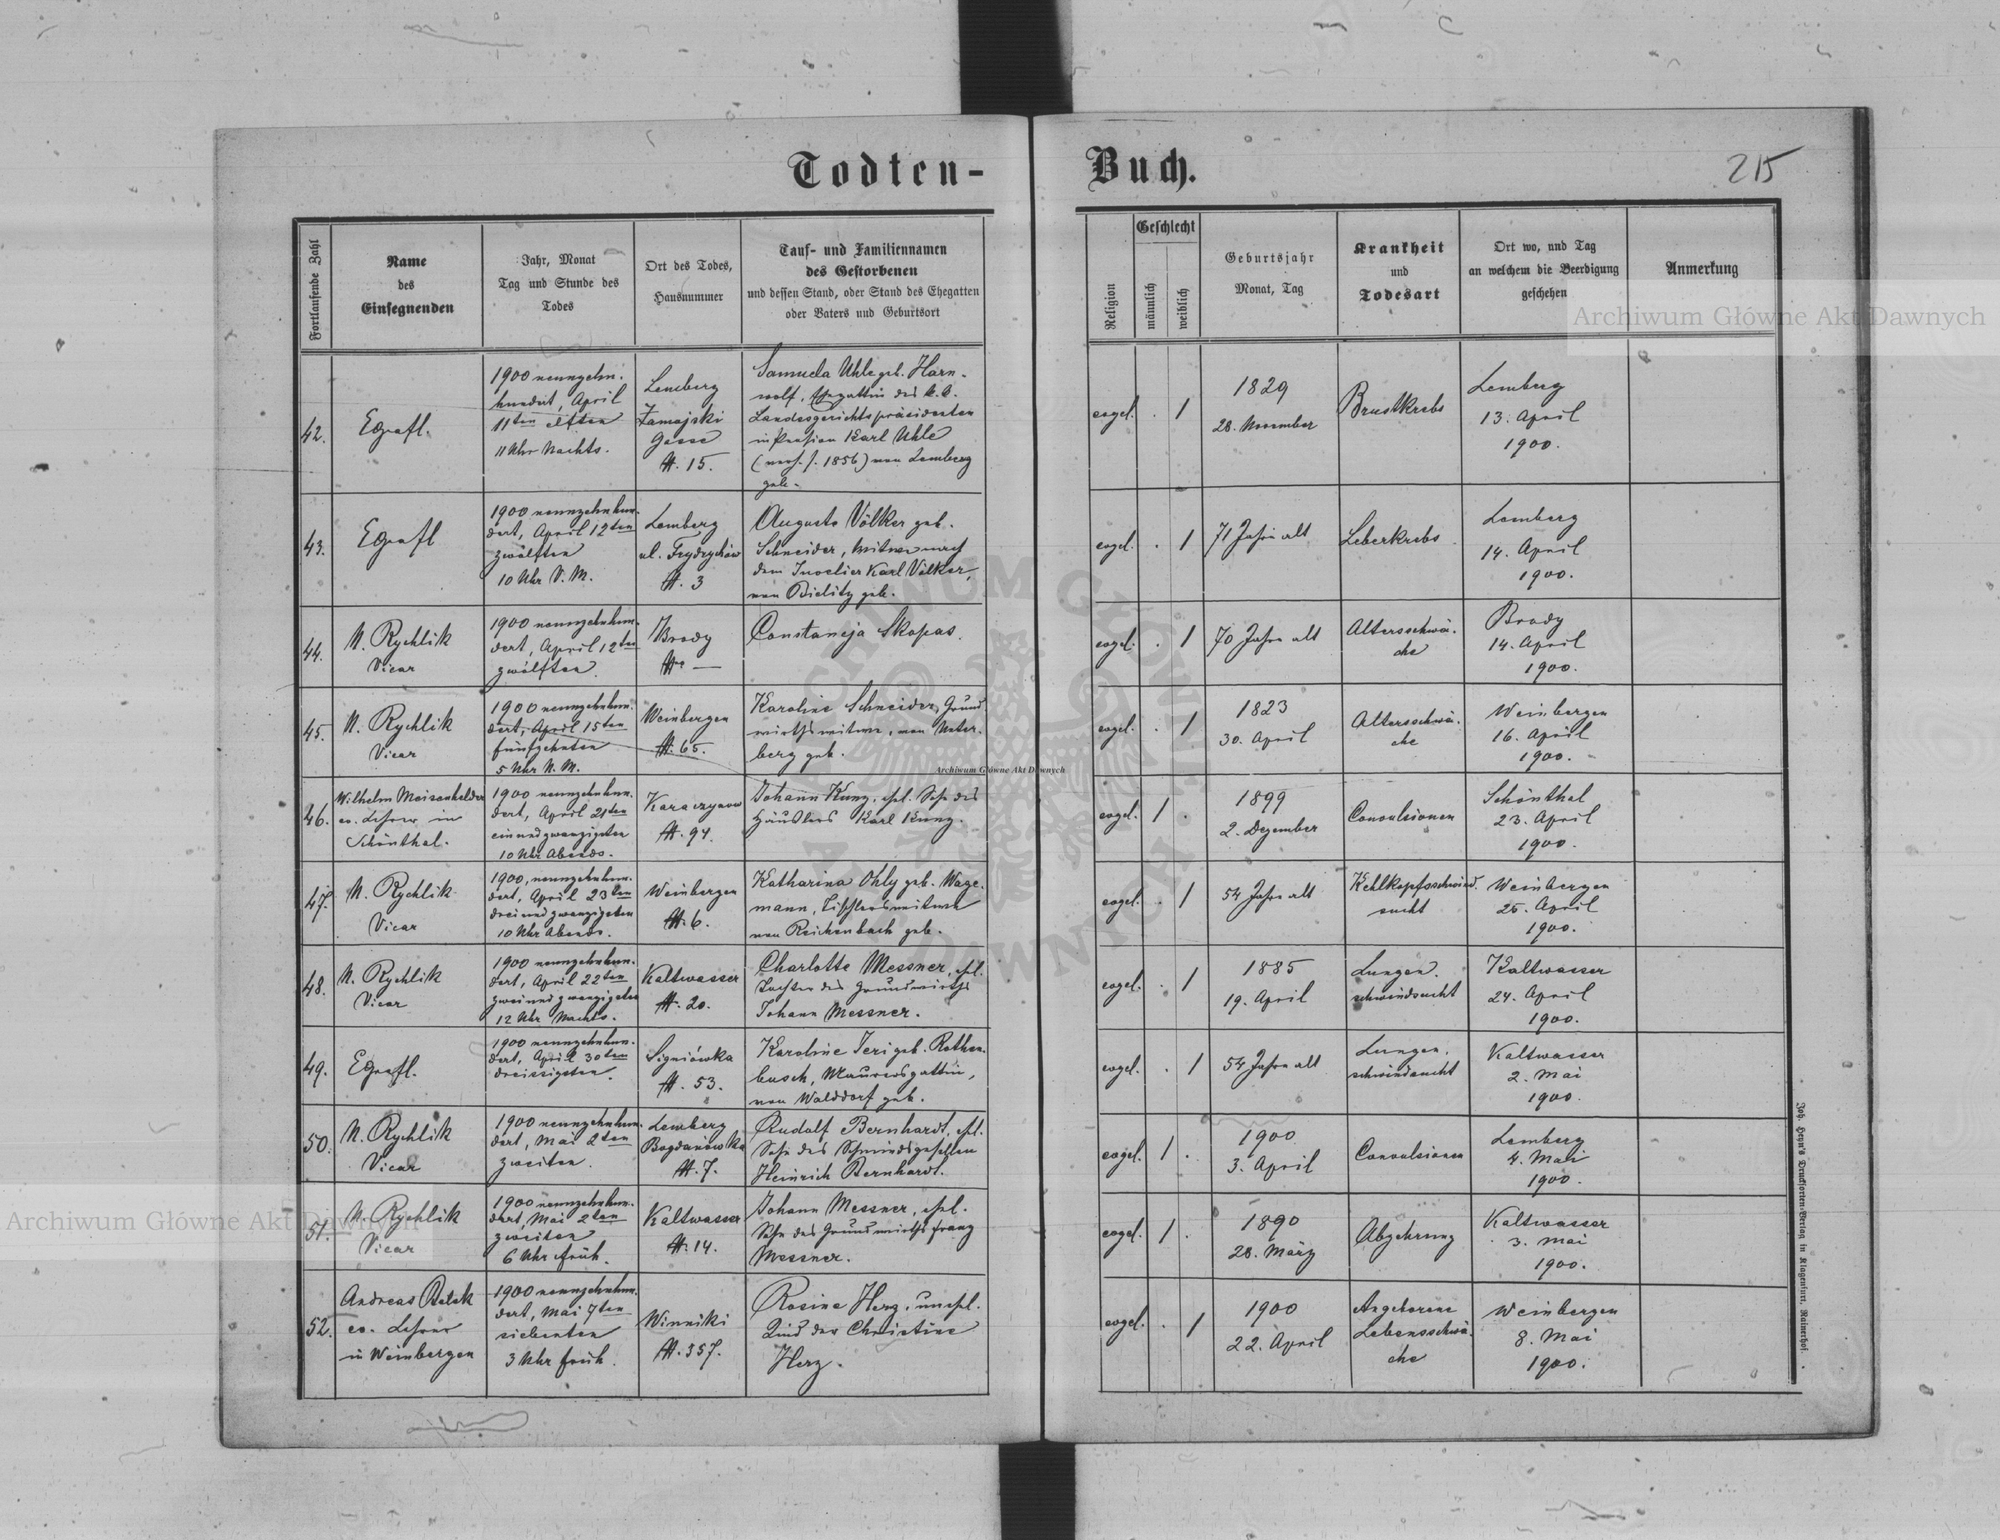 Todten-Buch.
215
Fortlaufende Zahl
Name
des
Einsegnenden
Jahr, Monat
Tag und Stunde des
Todes
Ort des Todes,
Hausnummer
Tauf- und Familiennamen
des Gestorbenen
und dessen Stand, oder Stand des Ehegatten
oder Vaters und Geburtsort
Religion
Geschlecht
männlich
weiblich
Geburtsjahr
Monat, Tag
Krankheit
und
Todesart
Ort wo, und Tag
an welchem die Beerdigung
geschehen
Anmerkung
42.
1900 neunzehn-
hundert, April
11ten elften
11 Uhr Nachts.
Lemberg
Zamojski
Gasse
N. 15.
Samuela Uhle geb. Harn-
wolf, Ehegattin des k. k.
Landesgerichtspräsidenten
in Pension Karl Uhle
1856) von Lemberg
geb.
evgel. . 1
1829
28. November
Brustkrebs
Lemberg
13. April
1900.
43.
1900 neunzehnhun-
dert, April 12ten
zwölften
10 Uhr V. M.
Lemberg
ul.
N. 3
Auguste Völker geb.
Schneider, Witwe nach
dem Juvelier Karl Völker,
von Bielitz geb.
evgel. . 1
71 Jahre alt
Leberkrebs
Lemberg
14. April
1900.
44.
N. Rychlik
Vicar
1900 neunzehnhun-
dert, April 12ten
zwölften.
Brody
N. —
Constancja Skopas.
evgel. . 1
70 Jahre alt
Altersschwä-
che
Brody
14. April
1900.
45.
N. Rychlik
Vicar
1900 neunzehnhun-
dert, April 15ten
fünfzehnten
5 Uhr N. M.
Weinbergen
N. 65.
Karoline Schneider, Grund-
wirthswitwe, von Unter-
berg geb.
evgel. . 1
1823
30. April
Altersschwä-
che
Weinbergen
16. April
1900.
46.
Wilhelm
ev. Lehrer in
Schönthal.
1900 neunzehnhun-
dert, April 21ten
einundzwanzigsten
10 Uhr Abends.
Karaczynow
N. 94.
Johann Kunz, ehel. Sohn des
Häuslers Karl Kunz.
evgel. 1 .
1899
2. Dezember
Convulsionen
Schönthal
23. April
1900.
47.
N. Rychlik
Vicar
1900, neunzehnhun-
dert, April 23ten
dreiundzwanzigsten
10 Uhr Abends.
Weinbergen
N. 6.
Katharina Ohly geb. Wage-
mann, Tischlerswitwe
von Reichenbach geb.
evgel. . 1
54 Jahre alt
Kehlkopfsschwind-
sucht
Weinbergen
25. April
1900.
48.
N. Rychlik
Vicar
1900 neunzehnhun-
dert, April 22ten
zweiundzwanzigsten
12 Uhr Nachts.
Kaltwasser
N. 20.
Charlotte Messner, ehel.
Tochter des Grundwirths
Johann Messner.
evgel. . 1
1885
19. April
Lungen-
schwindsucht
Kaltwasser
24. April
1900.
49.
1900 neunzehnhun-
dert, April 30ten
dreissigsten.
Signiówka
N. 53.
Karoline Jeri geb. Rothen-
busch, Maurersgattin,
von Walddorf geb.
evgel. . 1
54 Jahre alt
Lungen-
schwindsucht
Kaltwasser
2. Mai
1900.
50.
N. Rychlik
Vicar
1900 neunzehnhun-
dert, Mai 2ten
zweiten.
Lemberg
Bogdanówka
N. 7.
Rudolf Bernhardt, ehel.
Sohn des Schmiedgesellen
Heinrich Bernhardt.
evgel. 1 .
1900
3. April
Convulsionen
Lemberg
4. Mai
1900.
51.
N. Rychlik
Vicar
1900 neunzehnhun-
dert, Mai 2ten
zweiten
6 Uhr früh.
Kaltwasser
N. 14.
Johann Messner, ehel.
Sohn des Grundwirths Franz
Messner.
evgel. 1 .
1890
28. März
Abzehrung
Kaltwasser
3. Mai
1900.
52.
Andreas
ev. Lehrer
in Weinbergen
1900 neunzehnhun-
dert, Mai 7ten
siebenten
3 Uhr früh.
Winniki
N. 357.
Rosina Herz, unehel.
Kind der Christine
Herz.
evgel. . 1
1900
22. April
Angeborene
Lebensschwä-
che
Weinbergen
8. Mai
1900.
Joh. Heyn's Drucksorten-Verlag in Klagenfurt, Rainerhof.
Archiwum Główne Akt Dawnych
Archiwum Główne Akt Dawnych
Archiwum Główne Akt Dawnych
ARCHIWUM GŁÓWNE AKT DAWNYCH